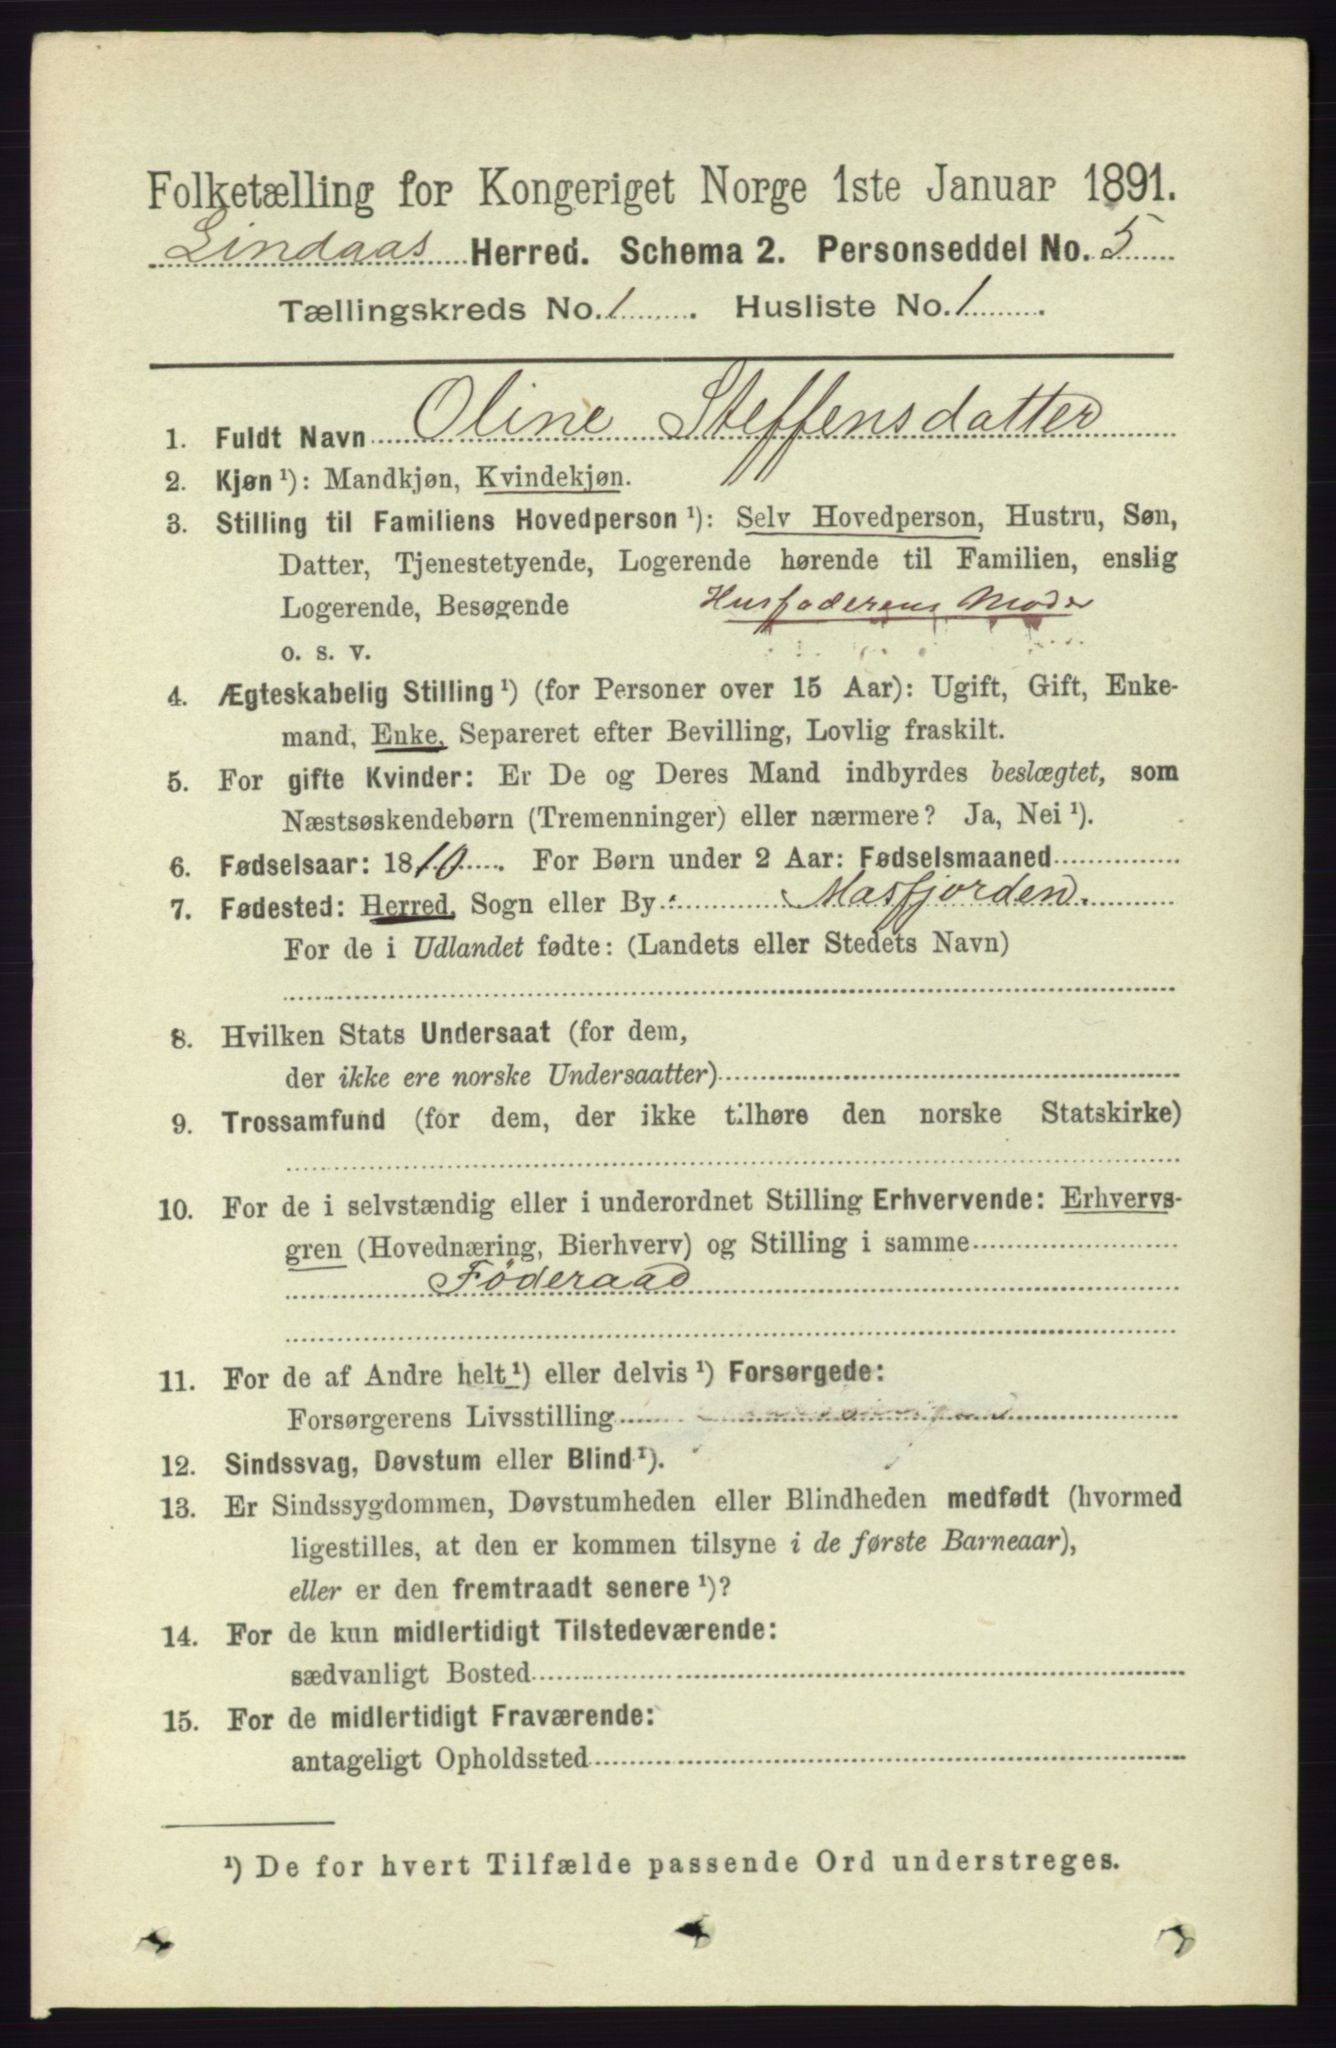 Folketælling for Kongeriget Norge 1ste Januar 1891.
Lindaas Herred. Schema 2. Personseddel No. 5
Tællingskreds No. 1. Husliste No. 1.
1. Fuldt Navn Oline Steffensdatter
2. Kjøn ¹): Mandkjøn, Kvindekjøn.
3. Stilling til Familiens Hovedperson ¹): Selv Hovedperson, Hustru, Søn,
Datter, Tjenestetyende, Logerende hørende til Familien, enslig
Logerende, Besøgende Husfaderens Moder
o. s. v.
4. Ægteskabelig Stilling ¹) (for Personer over 15 Aar): Ugift, Gift, Enke-
mand, Enke, Separeret efter Bevilling, Lovlig fraskilt.
5. For gifte Kvinder: Er De og Deres Mand indbyrdes beslægtet, som
Næstsøskendebørn (Tremenninger) eller nærmere? Ja, Nei ¹).
6. Fødselsaar: 1810. For Børn under 2 Aar: Fødselsmaaned
7. Fødested: Herred, Sogn eller By: Masfjorden.
For de i Udlandet fødte: (Landets eller Stedets Navn)
8. Hvilken Stats Undersaat (for dem,
der ikke ere norske Undersaatter)
9. Trossamfund (for dem, der ikke tilhøre den norske Statskirke)
10. For de i selvstændig eller i underordnet Stilling Erhvervende: Erhvervs-
gren (Hovednæring, Bierhverv) og Stilling i samme
Føderaad
11. For de af Andre helt ¹) eller delvis ¹) Forsørgede:
Forsørgerens Livsstilling
12. Sindssvag, Døvstum eller Blind ¹).
13. Er Sindssygdommen, Døvstumheden eller Blindheden medfødt (hvormed
ligestilles, at den er kommen tilsyne i de første Barneaar),
eller er den fremtraadt senere ¹)?
14. For de kun midlertidigt Tilstedeværende:
sædvanligt Bosted
15. For de midlertidigt Fraværende:
antageligt Opholdssted
¹) De for hvert Tilfælde passende Ord understreges.